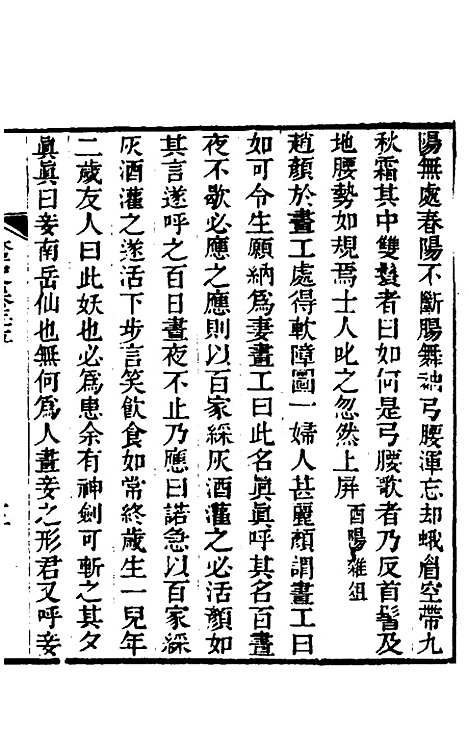 陽無處春陽不斷腸舞袖弓腰渾忘却蛾眉空帶九
秋霜其中雙鬟者曰如何是弓腰歌者乃反首髻及
地腰勢如規焉士人叱之忽然上屏酉陽雜俎
趙顏於畫工處得軟障圖一婦人甚麗顏謂畫工曰
如可令生願納為妻畫工曰此名眞眞呼其名百晝
夜不歇必應之應則以百家綵灰酒灌之必活顏如
其言遂呼之百日晝夜不止乃應曰諾急以百家綵
灰酒灌之遂活下步言笑飮食如常終歲生一兒年
二歲友人曰此妖也必爲患余有神劍可斬之其夕
眞眞曰妾南岳仙也無何爲人畫妾之形君又呼妾